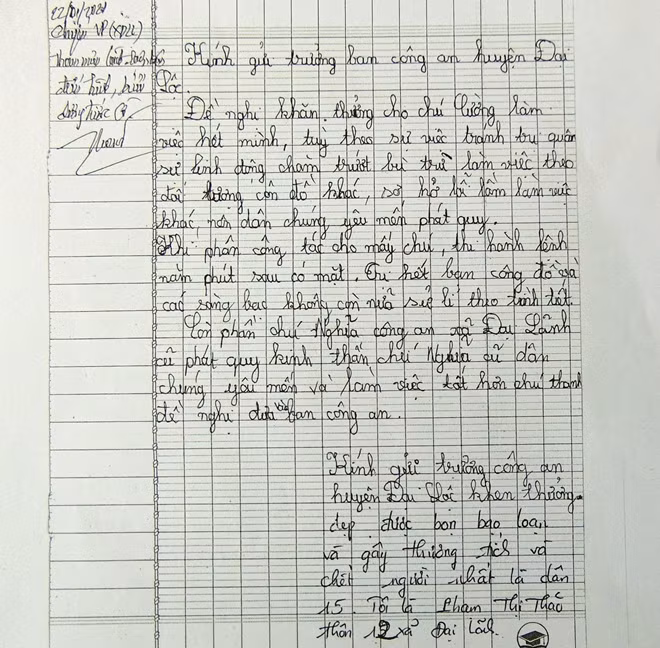 22/01/2021
Chuyển VP (XDLL)
tham mưu
Kính gửi trưởng ban công an huyện Đại
Lộc.
Đề nghị khăn thưởng cho chú Cường làm
việc hết mình, tuỳ theo sự việc tranh trụ quân
sự linh động chầm trướt bù trừ làm việc theo
đối tượng côn đồ khác, sơ hở lỗi lầm làm việc
khác, nên dân chúng yêu mến phát quy.
Khi phân công tác cho mấy chú, thi hành lệnh
năm phút sau có mặt. Trừ hết bọn công đồ và
các sòng bạc không còn nữa sử lí theo tình tết.
Còn phần chú Nghĩa công an xã Đại Lãnh
cũ phát quy kinh thần chú Nghĩa cũ dân
chúng yêu mến và làm việc tốt hơn chú thanh
đề nghị đưa vào ban công an.
Kính gửi trưởng công an
huyện Đại Lộc khen thưởng
dẹp được bọn bạo loạn
và gây thương tích và
chết người nhất là dân
15. Tôi là Pham Thị Thảo
thôn 12 xã Đại Lãnh.